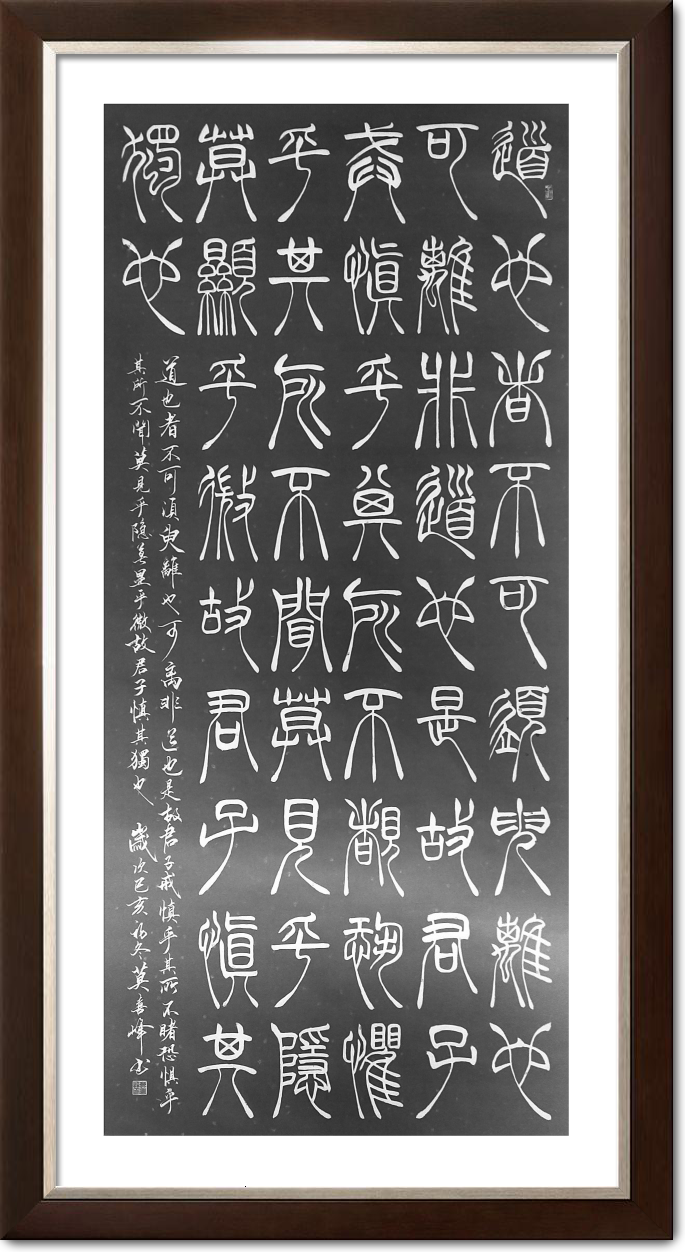 道也者不可須臾離也
可離非道也是故君子
戒慎乎其所不覩恐懼
乎其所不聞莫見乎隱
莫顯乎微故君子慎其
獨也
道也者不可湏臾離也可离非道也是故君子戒慎乎其所不睹恐惧乎
其所不聞莫見乎隐莫显乎微故君子慎其獨也 歲次己亥初冬莫喜峰书